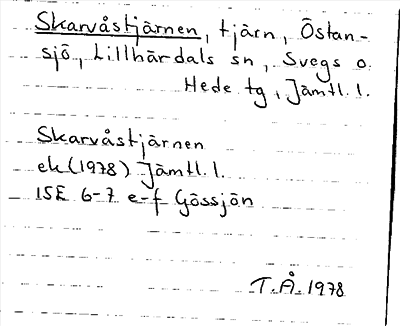 Skarvåstjärnen, tjärn, Östan-
sjö, Lillhärdals sn, Svegs o.
Hede tg, Jämtl. l.
Skarvåstjärnen
ek (1978) Jämtl. l.
15E 6-7 e-f Gössjön
T. Å. 1978